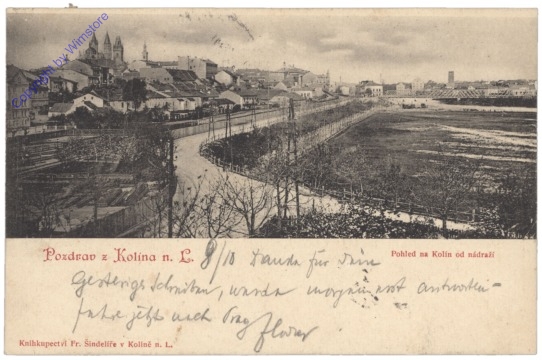 Copyright by Wimstore
Pozdrav z Kolína n. L.
Pohled na Kolín od nádraží
9/10 Danke für Dein
gestriges Schreiben, werde morgen erst antworten
fahre jetzt nach Prag
Knihkupectví Fr. Šindelíře v Kolíně n. L.